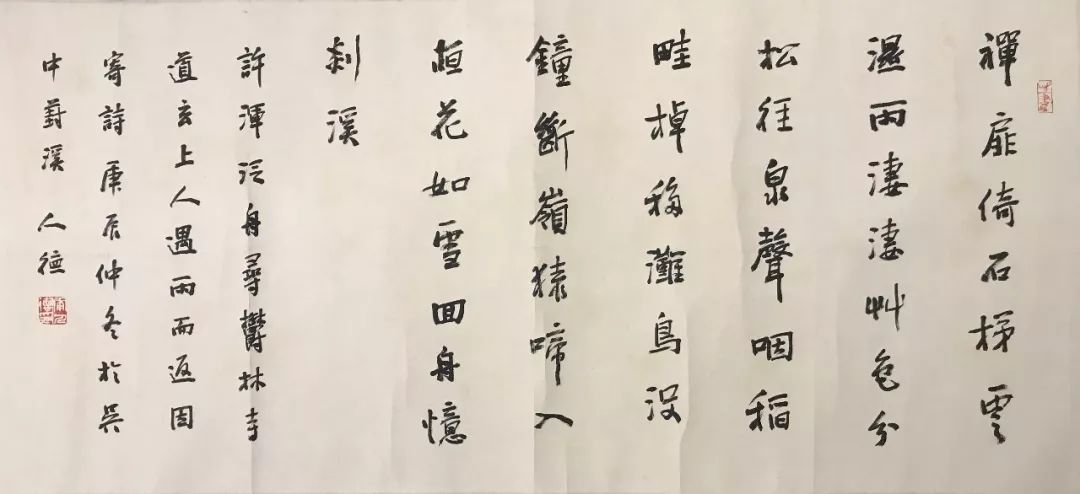 禪扉倚石梯雲
濕雨淒淒艸色分
松徑泉聲咽稻
畦棹移灘鳥没
鐘斷嶺猿啼入
桓花如雪回舟憶
剡溪
許渾泛舟尋鬱林寺
道玄上人遇雨而返因
寄詩庚辰仲冬於吳
中葑溪 人德